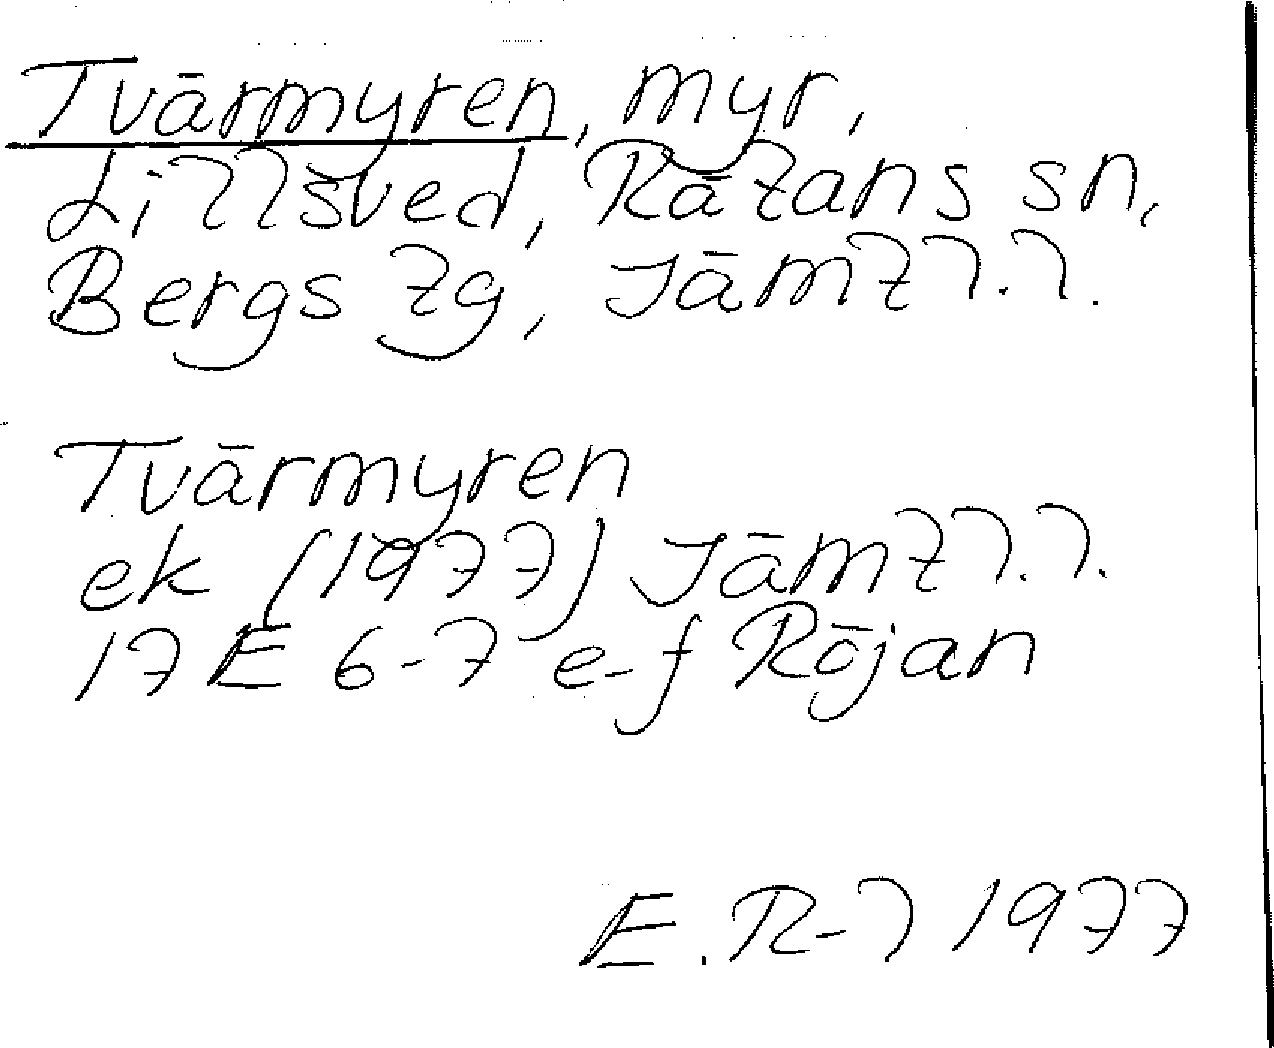 Tvärmyren, myr,
Lillsved, Rätans sn,
Bergs tg, Jämtl.l.
Tvärmyren
ek (1977) Jämtl.l.
17E 6-7 e-f Röjan
E.R-l 1977